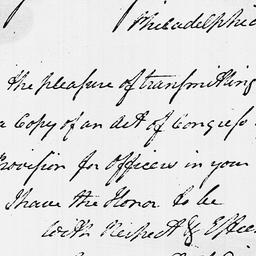 Philadelphi
the pleasure of transmitting
a Copy of an Act of Congress
Provision for Officers in your
I have the Honor to be
with Respect & Estee